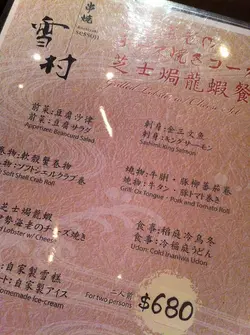 串燒
雪村
チーズ焼きコース
芝士焗龍蝦餐
Grilled Lobster w/ Cheese Set
前菜:豆腐沙律
前菜:豆腐サラダ
Appetizer: Beancurd Salad
刺身:金三文魚
刺身:キングサーモン
Sashimi: King Salmon
卷物:軟殼蟹卷物
物:ソフトシェルクラブ巻
Soft Shell Crab Roll
燒物:牛脷・豚柳蕃茄卷
焼物:牛タン・豚トマト巻き
Grill: Ox Tongue、Pork and Tomato Roll
芝士焗龍蝦
勢海老のチーズ焼き
Lobster w/ Cheese
食事:稻庭冷烏冬
食事:冷稲庭うどん
Udon: Cold Inaniwa Udon
自家製雪糕
ート:自家製アイス
Homemade Ice-cream
二人前
For two persons
$680